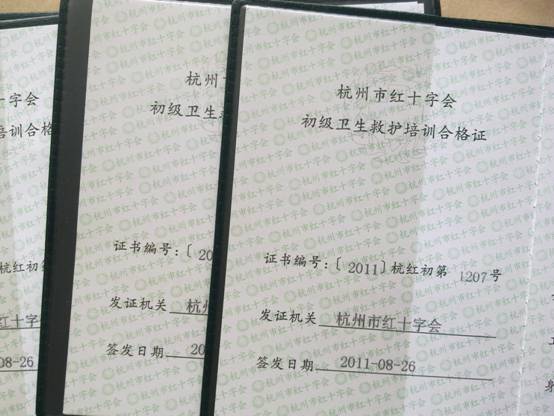 十字会
培训合格
红十字
08-26
杭州
初级卫生
证书编号:〔20
发证机关 杭州
签发日期 20
杭州市红十字会
初级卫生救护培训合格证
证书编号:〔2011〕杭红初第 1207号
发证机关 杭州市红十字会
签发日期 2011-08-26